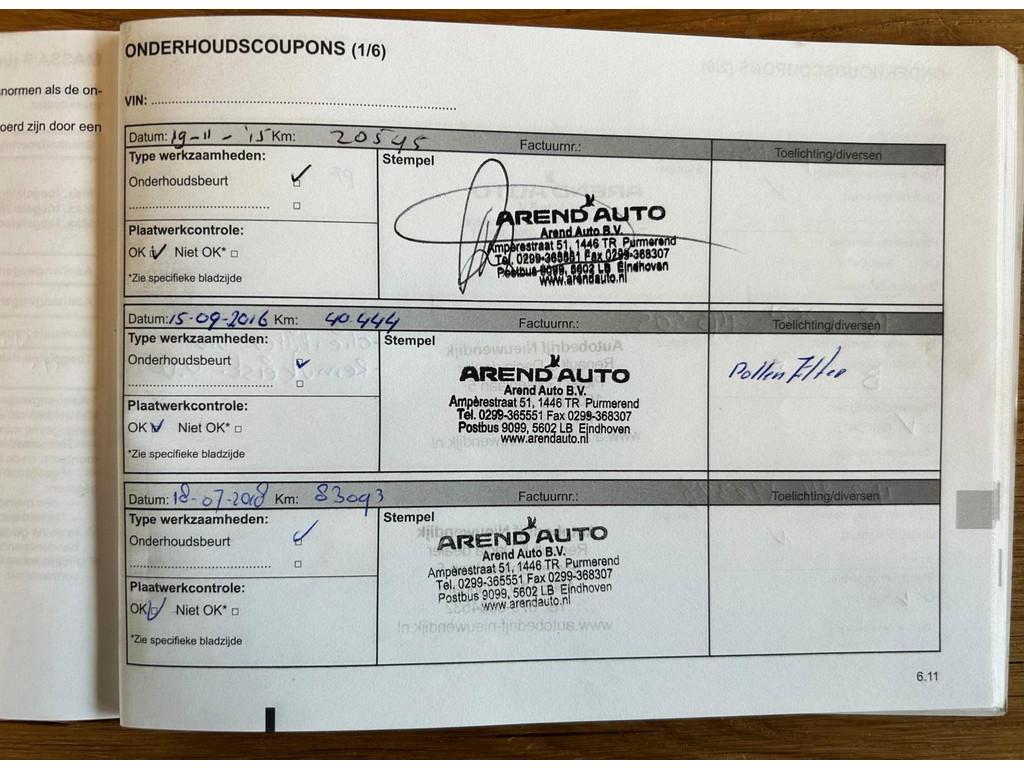 normen als de on-
oerd zijn door een
ONDERHOUDSCOUPONS (1/6)
VIN:
Datum: 19-11-'15 Km: 20545 Factuurnr.: Toelichting/diversen
Type werkzaamheden:
Stempel
Onderhoudsbeurt
AREND AUTO
Arend Auto B.V.
Ampèrestraat 51, 1446 TR Purmerend
Tel. 0299-365551 Fax 0299-368307
Postbus 9099, 5602 LB Eindhoven
www.arendauto.nl
Plaatwerkcontrole:
OK Niet OK*
*Zie specifieke bladzijde
Datum: 15-09-2016 Km: 40.444 Factuurnr.: Toelichting/diversen
Type werkzaamheden:
Stempel
Onderhoudsbeurt
AREND AUTO
Arend Auto B.V.
Ampèrestraat 51, 1446 TR Purmerend
Tel. 0299-365551 Fax 0299-368307
Postbus 9099, 5602 LB Eindhoven
www.arendauto.nl
Pollen
Plaatwerkcontrole:
OK Niet OK*
*Zie specifieke bladzijde
Datum: 18-07-2018 Km: 83093 Factuurnr.: Toelichting/diversen
Type werkzaamheden:
Stempel
Onderhoudsbeurt
AREND AUTO
Arend Auto B.V.
Ampèrestraat 51, 1446 TR Purmerend
Tel. 0299-365551 Fax 0299-368307
Postbus 9099, 5602 LB Eindhoven
www.arendauto.nl
Plaatwerkcontrole:
OK Niet OK*
*Zie specifieke bladzijde
6.11